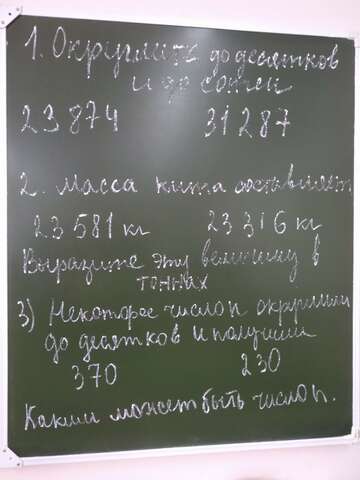 1. Округлить до десятков
и до сотен
23 874 31 287
2. Масса кита составляет
23 581 кг 23 316 кг
Выразите эту величину в
тоннах
3) Некоторое число n округлили
до десятков и получили
370 230
Каким может быть число n.